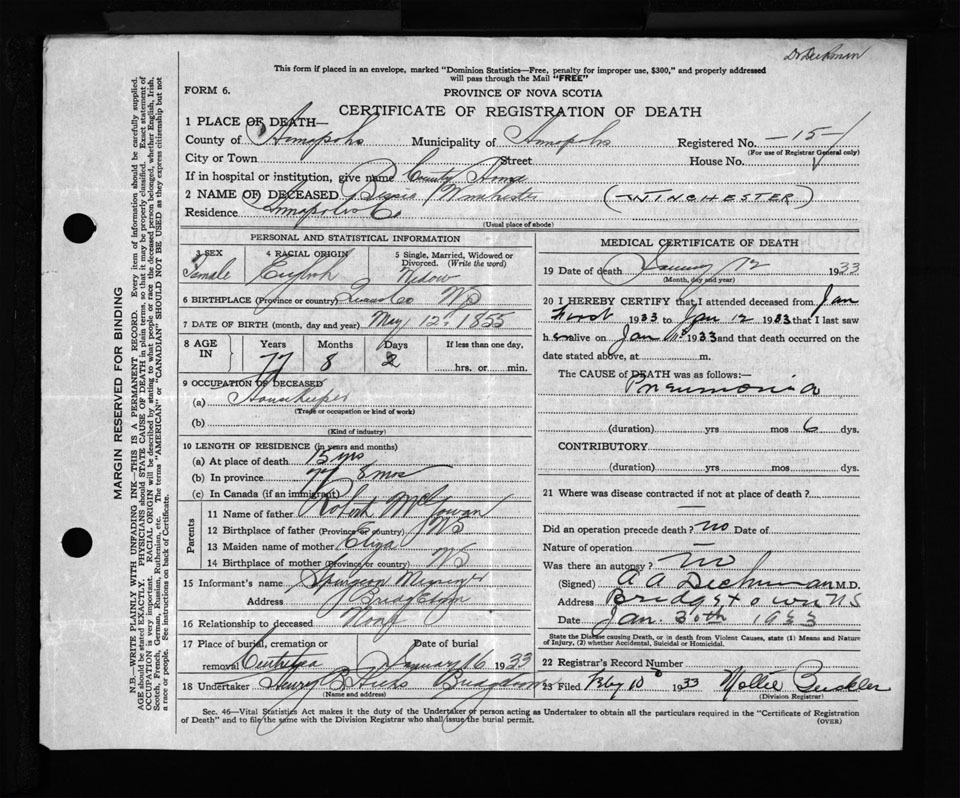 This form if placed in an envelope, marked "Dominion Statistics—Free, penalty for improper use, $300," and properly addressed
will pass through the Mail "FREE"
FORM 6.
PROVINCE OF NOVA SCOTIA
CERTIFICATE OF REGISTRATION OF DEATH
1 PLACE OF DEATH—
County of Annapolis Municipality of Annapolis Registered No. —15—
(For use of Registrar General only)
City or Town Street House No.
If in hospital or institution, give name County Home
2 NAME OF DECEASED Winchester (WINCHESTER)
Residence Annapolis Co
(Usual place of abode)
PERSONAL AND STATISTICAL INFORMATION
3 SEX 4 RACIAL ORIGIN 5 Single, Married, Widowed or Divorced. (Write the word)
Female English Widow
6 BIRTHPLACE (Province or country) Queens Co NS
7 DATE OF BIRTH (month, day and year) May 12, 1855
8 AGE IN Years Months Days If less than one day,
77 8 2 hrs. or min.
9 OCCUPATION OF DECEASED
(a) Housekeeper
(Trade or occupation or kind of work)
(b)
(Kind of industry)
10 LENGTH OF RESIDENCE (in years and months)
(a) At place of death 15 yrs
(b) In province 77 8 mos
(c) In Canada (if an immigrant)
Parents
11 Name of father Robert McGowan
12 Birthplace of father (Province or country) NS
13 Maiden name of mother Eliza
14 Birthplace of mother (Province or country) NS
15 Informant's name Spurgeon
Address Bridgetown
16 Relationship to deceased None
17 Place of burial, cremation or removal Date of burial
Centrelea January 16 1933
18 Undertaker Henry B Hicks Bridgetown
(Name and address)
MEDICAL CERTIFICATE OF DEATH
19 Date of death January 12 1933
(Month, day and year)
20 I HEREBY CERTIFY that I attended deceased from Jan
First 1933 to Jan 12 1933 that I last saw
h er alive on Jan 1933 and that death occurred on the
date stated above, at m.
The CAUSE of DEATH was as follows:—
Pneumonia
(duration) yrs mos 6 dys.
CONTRIBUTORY
(duration) yrs mos dys.
21 Where was disease contracted if not at place of death?
—
Did an operation precede death? no Date of
Nature of operation —
Was there an autopsy? no
(Signed) A A Dechman M.D.
Address Bridgetown NS
Date Jan. 30th 1933
State the Disease causing Death, or in death from Violent Causes, state (1) Means and Nature
of Injury, (2) whether Accidental, Suicidal or Homicidal.
22 Registrar's Record Number
23 Filed Feby 10 1933 Nellie Buckler
(Division Registrar)
Sec. 46—Vital Statistics Act makes it the duty of the Undertaker or person acting as Undertaker to obtain all the particulars required in the "Certificate of Registration
of Death" and to file the same with the Division Registrar who shall issue the burial permit.
(OVER)
MARGIN RESERVED FOR BINDING
N.B.—WRITE PLAINLY WITH UNFADING INK—THIS IS A PERMANENT RECORD. Every item of information should be carefully supplied.
AGE should be stated EXACTLY. PHYSICIANS should STATE CAUSE OF DEATH in plain terms, so that it may be properly classified. Exact statement of
OCCUPATION is very important. RACIAL ORIGIN will be described by stating to what people or race the deceased person belonged, whether English, Irish,
Scotch, French, German, Russian, Ruthenian, etc. The terms "AMERICAN" or "CANADIAN" SHOULD NOT BE USED as they express citizenship but not
a race or people. See instructions on back of Certificate.